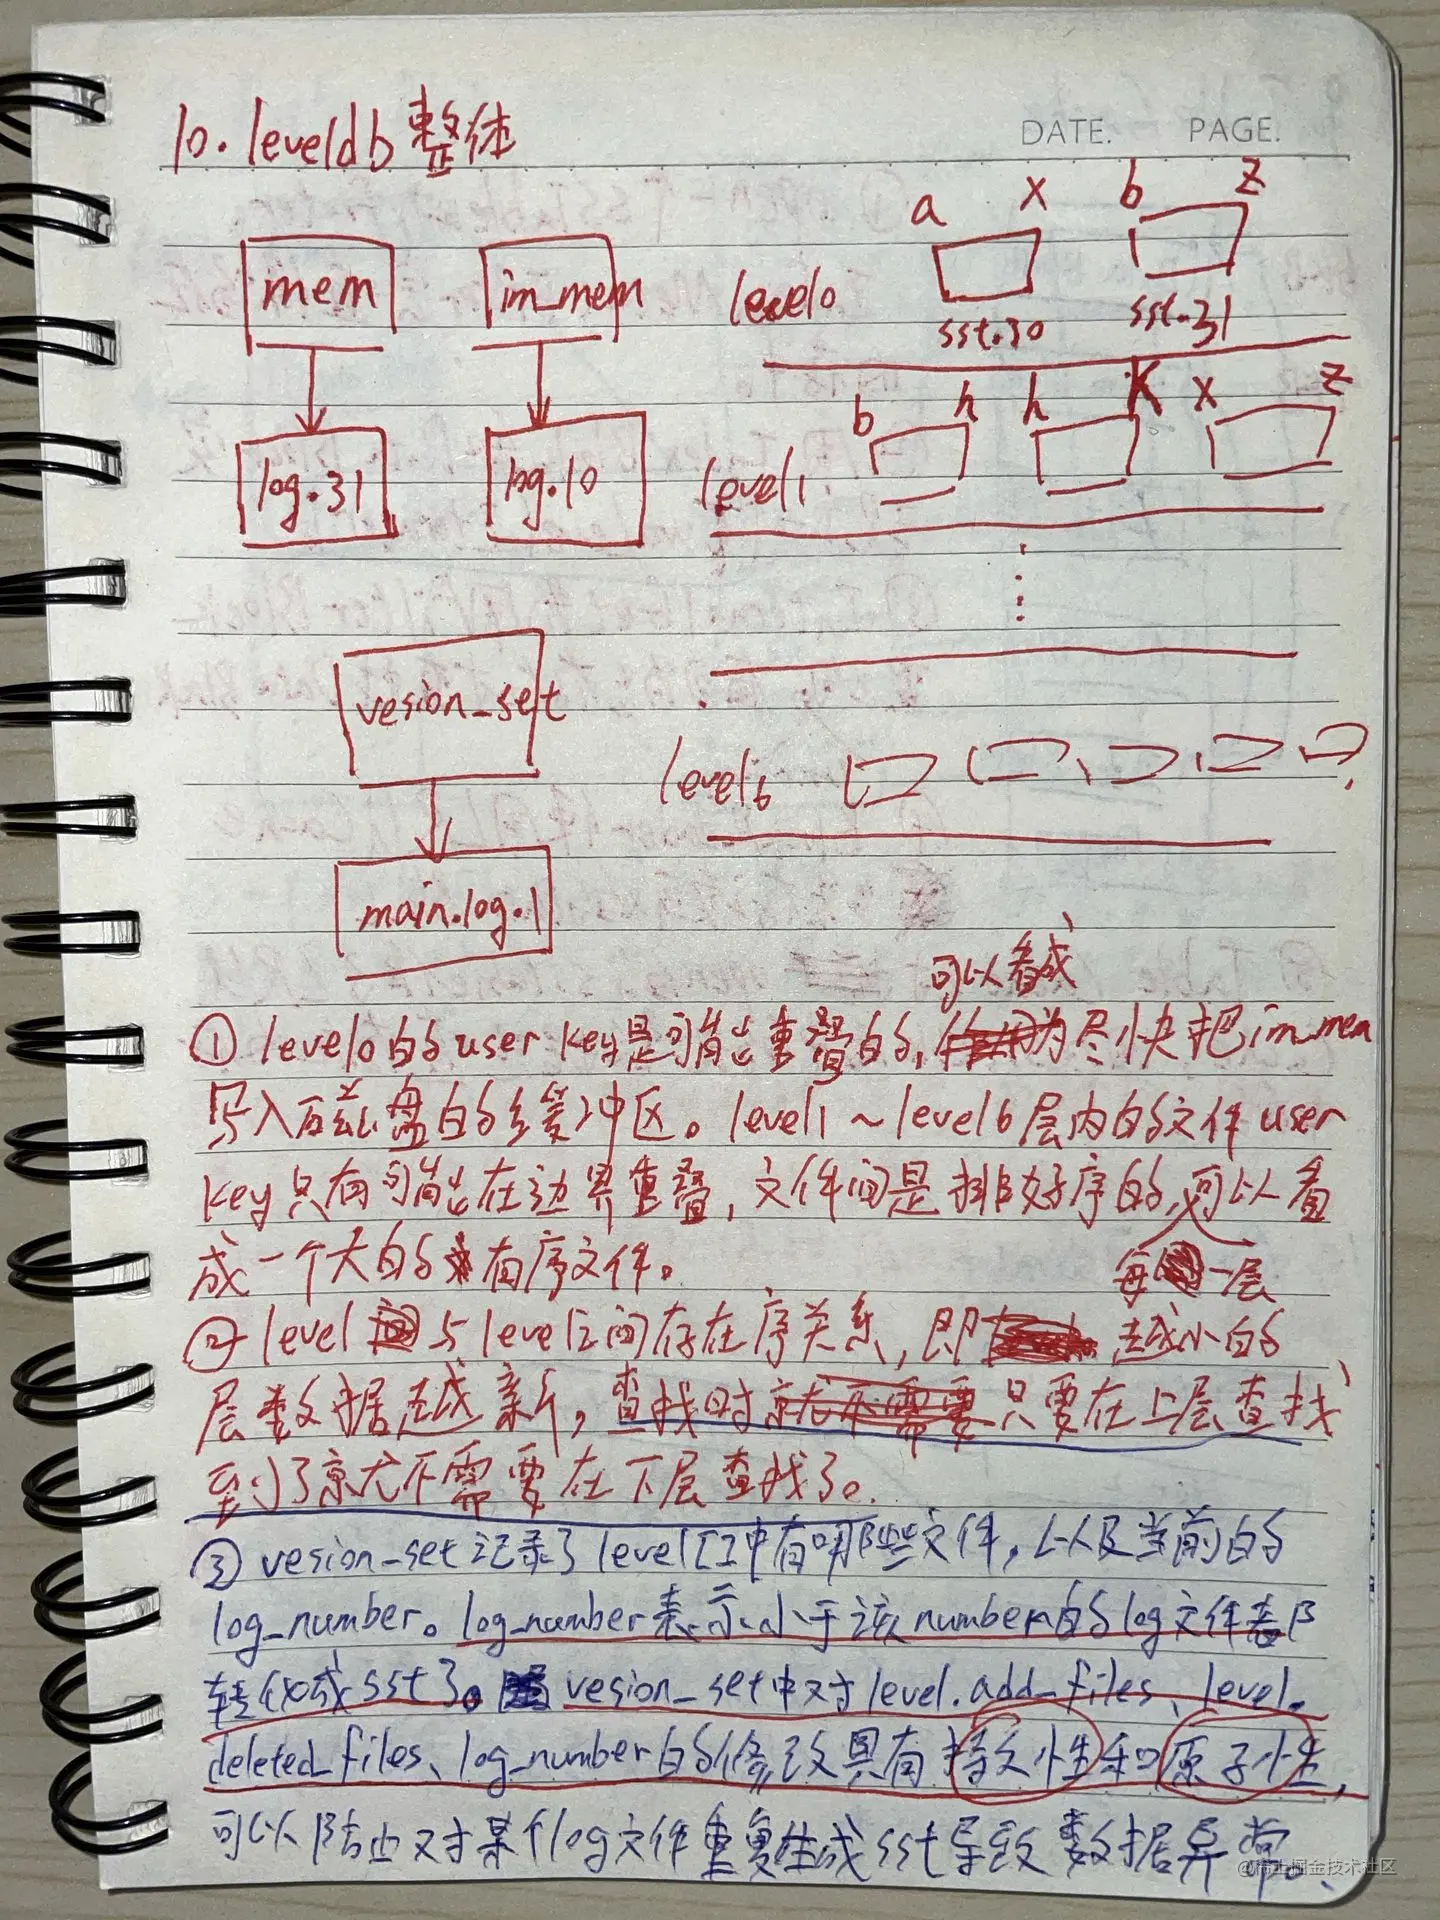 10. leveldb 整体
DATE. PAGE.
a x b z
mem im_mem level0
sst.30 sst.31
b h h K x z
log.31 log.10 level1
vesion_set
level6
main.log.1
可以看成
① level0的user key是可能重叠的, 为尽快把im_mem
写入磁盘的缓冲区。level1~level6层内的文件user
key只有可能在边界重叠, 文件间是排好序的, 可以看
成一个大的有序文件。
每一层
② level与level之间存在序关系, 即越小的
层数据越新, 查找时只要在上层查找
到了就不需要在下层查找了。
③ vesion_set记录了level中有哪些文件, 以及当前的
log_number。log_number表示小于该number的log文件都
转化成sst了。vesion_set中对于level.add_files、level.
deleted_files、log_number的修改具有持久性和原子性,
可以防止对某个log文件重复生成sst导致数据异常。
@稀土掘金技术社区